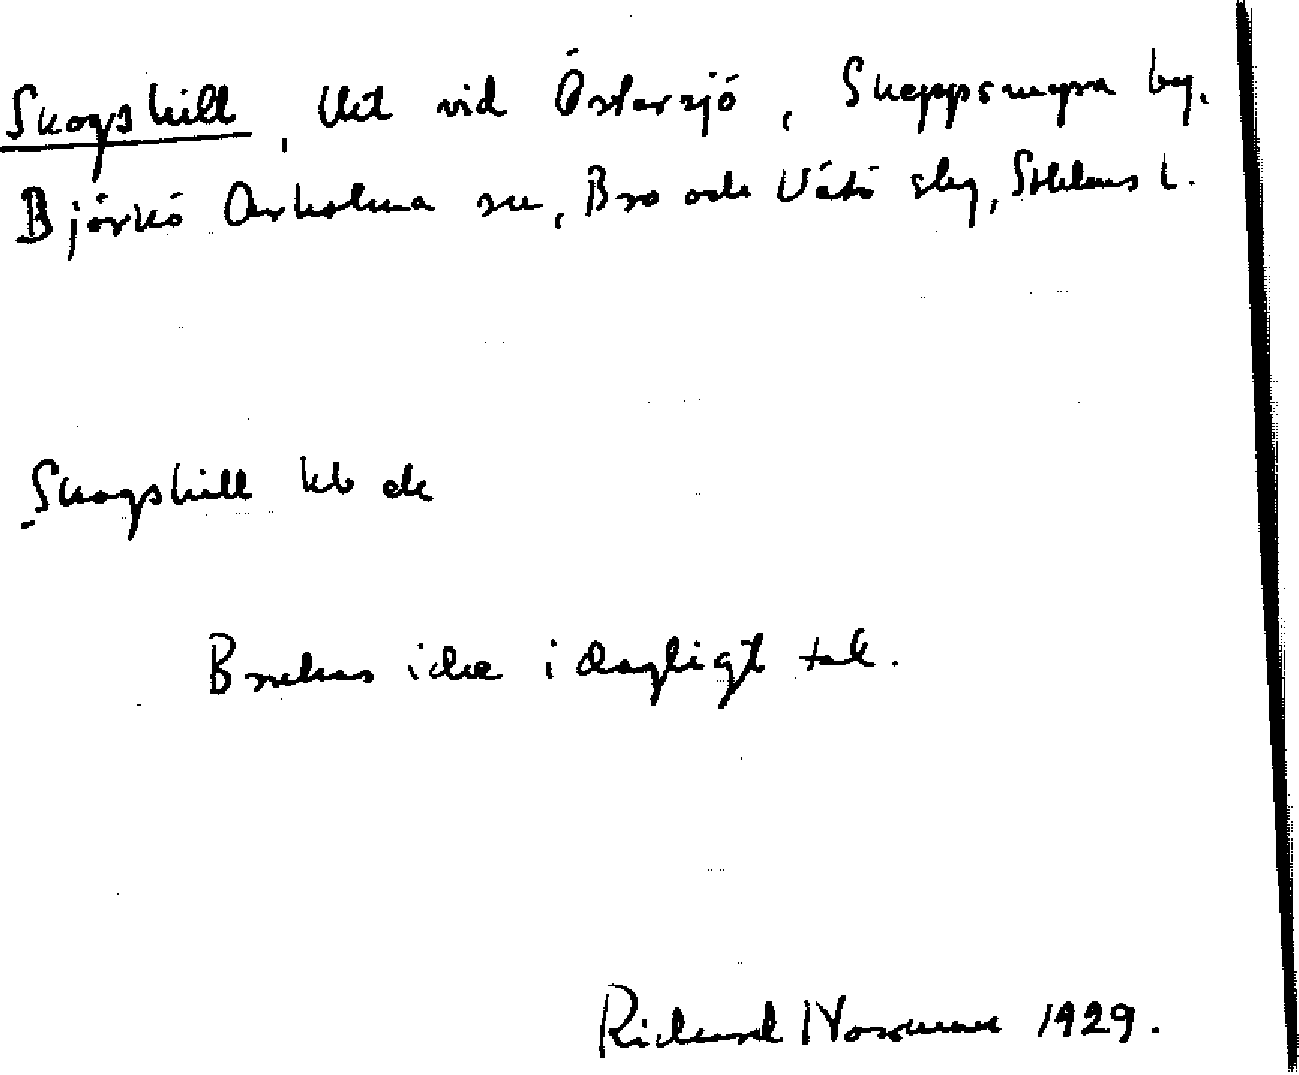 Skogshill, lht vid Östersjö, Skeppsmyra by.
Björkö Arholma sn, Bro och Vätö skg, Sthlms l.
Skogshill kb
Brukas icke i dagligt tal.
Richard Norrman 1929.